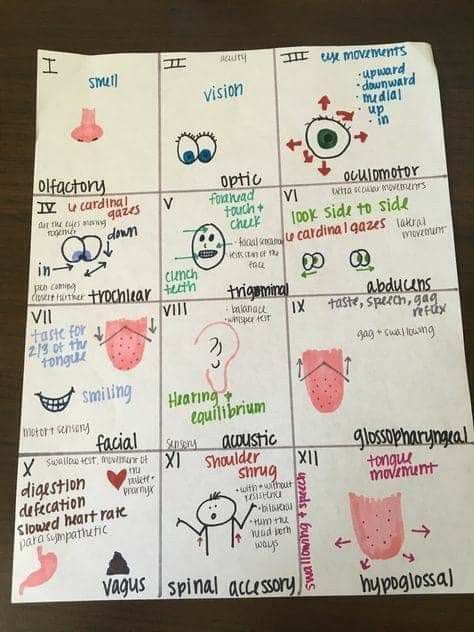 I
smell
olfactory
II
acuity
vision
optic
III
eye movements
• upward
• downward
• medial
• up
• in
oculomotor
IV
6 cardinal
gazes
are the eyes moving
together
down
in
pen coming
closer + further
trochlear
V
forehead
touch +
cheek
• facial
tests skin of the
face
clench
teeth
trigeminal
VI
extra ocular movements
look side to side
6 cardinal gazes
lateral
movement
abducens
VII
taste for
2/3 of the
tongue
smiling
motor + sensory
facial
VIII
• balance
• whisper test
Hearing +
equilibrium
sensory
acoustic
IX
taste, speech, gag
reflex
gag + swallowing
glossopharyngeal
X
swallow test, movement of
the
palate +
digestion
defecation
slowed heart rate
parasympathetic
vagus
XI
shoulder
shrug
• with + without
resistance
• bilateral
• turn the
head both
ways
spinal accessory
XII
tongue
movement
swallowing + speech
hypoglossal